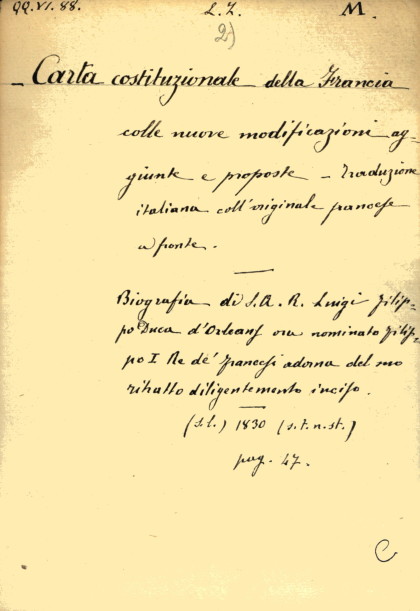 QQ.VI.88. L.Z. M.
2)
– Carta costituzionale della Francia
colle nuove modificazioni ag-
giunte e proposte – Traduzione
italiana coll'originale francese
a fronte.
Biografia di S.A.R. Luigi Filip-
po Duca d'Orleans ora nominato Filip-
po I Re de' Francesi adorna del suo
ritratto diligentemente inciso.
(s.l.) 1830 (s.t.n.st.)
pag. 47.
C